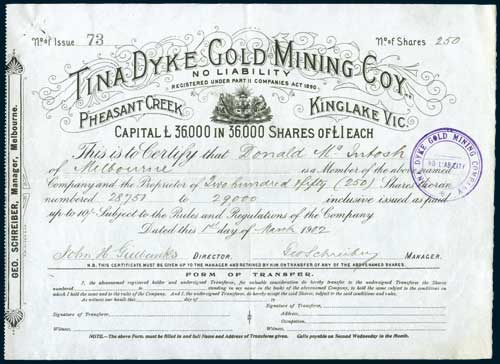 No. of Issue 73
No. of Shares 250
TINA DYKE GOLD MINING COY.
NO LIABILITY
REGISTERED UNDER PART II COMPANIES ACT 1890.
PHEASANT CREEK
KINGLAKE VIC.
CAPITAL £36000 IN 36000 SHARES OF £1 EACH
This is to Certify that Donald McIntosh
of Melbourne is a Member of the above named
Company and the Proprietor of Two hundred & fifty (250) Shares therein
numbered 28751 to 29000 inclusive issued as paid
up to 10/- Subject to the Rules and Regulations of the Company
Dated this 1st day of March 1902
John H. DIRECTOR. Geo Schreiber MANAGER.
N.B. THIS CERTIFICATE MUST BE GIVEN UP TO THE MANAGER AND RETAINED BY HIM ON TRANSFER OF ANY OF THE ABOVE NAMED SHARES.
FORM OF TRANSFER.
I, the abovenamed registered holder and undersigned Transferor, for valuable consideration do hereby transfer to the undersigned Transferee the Shares
numbered to standing in my name in the books of the abovenamed Company, which shall be held subject to the conditions on
which I hold the same and to the rules of the Company. And I, the undersigned Transferee, do hereby accept the said Shares, subject to the said conditions and rules.
As witness our hands this day of
Signature of Transferor, Signature of Transferee,
Address,
Occupation,
Witness, Witness,
NOTE.—The above Form must be filled in and full Name and Address of Transferee given. Calls payable on Second Wednesday in the Month.
GEO. SCHREIBER, Manager, Melbourne.
TINA DYKE GOLD MINING COMPANY
NO LIABILITY